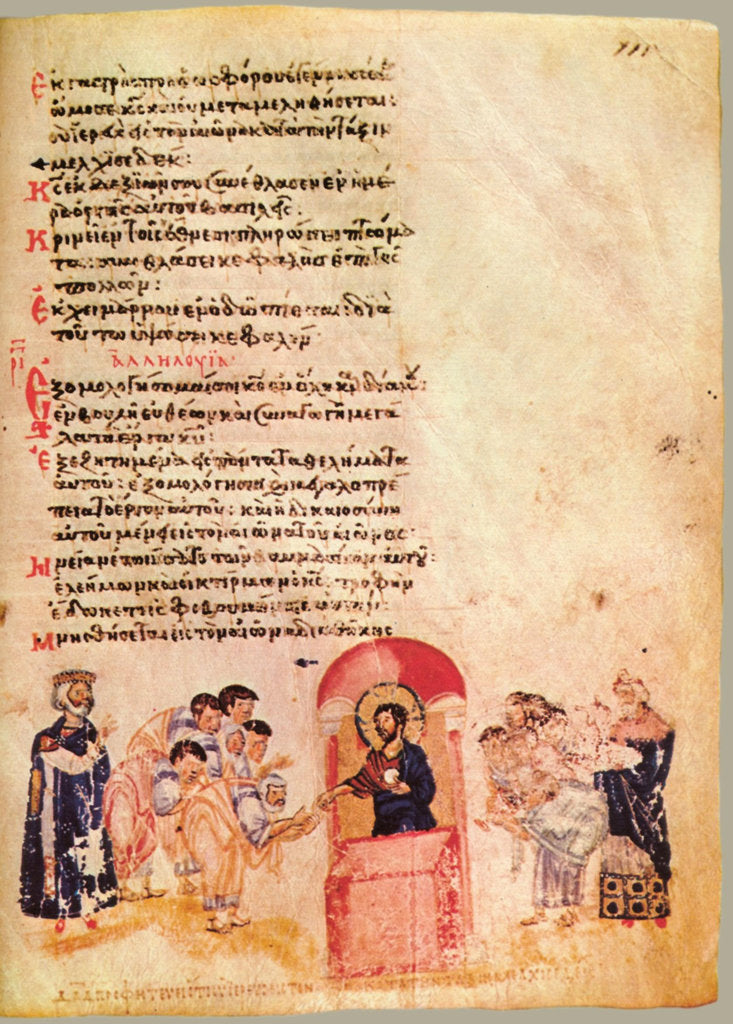 Ἐκ γαστρὸς πρὸ ἑωσφόρου
ὤμοσε κς καὶ οὐ μεταμεληθήσεται:
σὺ ἱερεὺς εἰς τὸν αἰῶνα κατὰ τὴν τάξιν
μελχισεδέκ:
Κς ἐκ δεξιῶν σου συνέθλασεν ἐν ἡμέ
ρα ὀργῆς αὐτοῦ βασιλεῖς.
Κρινεῖ ἐν τοῖς ἔθνεσι πληρώσει πτώμα
τα: συνθλάσει κεφαλὰς ἐπὶ γῆς
πολλῶν:
Ἐκ χειμάρρου ἐν ὁδῶ πίεται: διὰ
τοῦτο ὑψώσει κεφαλήν
ΡΙ ἀλληλούϊα
Ἐξομολογήσομαί σοι κε ἐν ὅλη καρδία μου:
ἐν βουλῆ εὐθέων καὶ συναγωγῆ μεγά
λα τὰ ἔργα κυ:
Ἐξεζητημένα εἰς πάντα τὰ θελήματα
αὐτοῦ: ἐξομολόγησις καὶ μεγαλοπρέ
πεια τὸ ἔργον αὐτοῦ: καὶ ἡ δικαιοσύνη
αὐτοῦ μένει εἰς τὸν αἰῶνα τοῦ αἰῶνος:
Μνείαν ἐποιήσατο τῶν θαυμασίων αὐτοῦ:
ἐλεήμων καὶ οἰκτίρμων ὁ κς: τροφὴν
ἔδωκεν τοῖς φοβουμένοις αὐτόν:
Μνησθήσεται εἰς τὸν αἰῶνα διαθήκης
ΔΑΔ ΠΡΟΦΗΤΕΥΕΙ ΚΑΤΑ ΤΗΝ ΤΑΞΙΝ ΜΕΛΧΙΣΕΔΕΚ